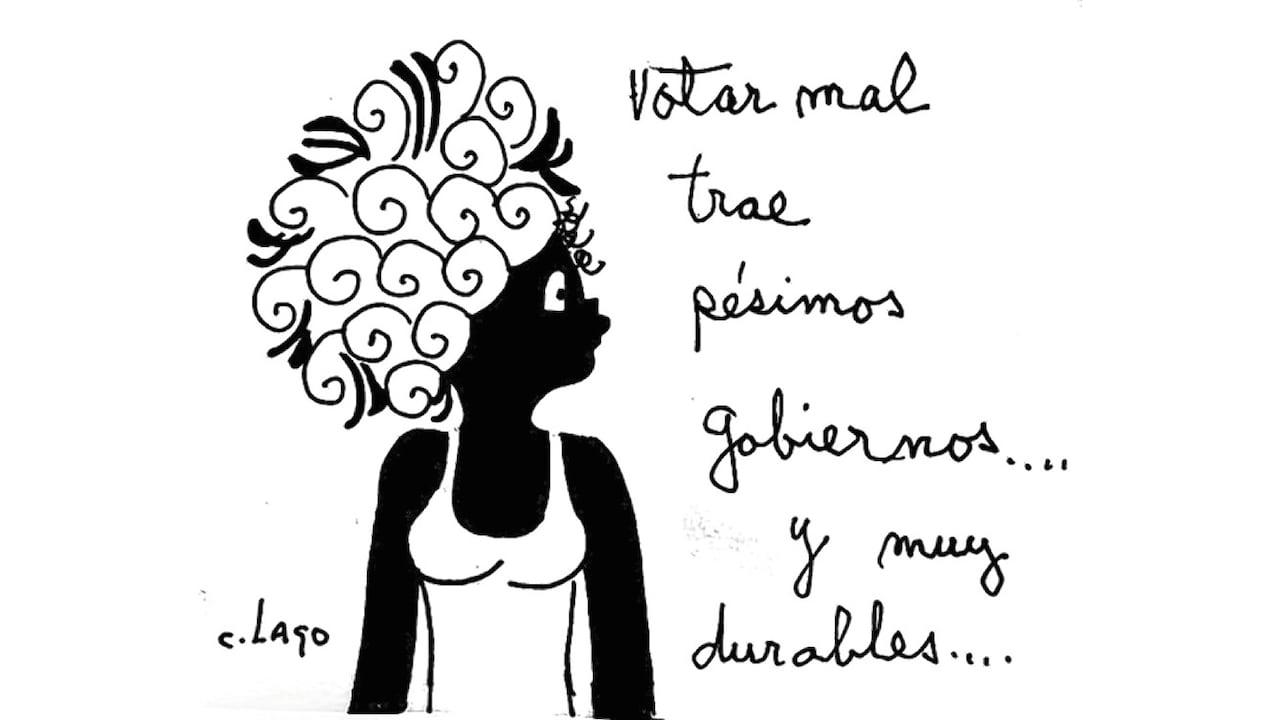 Votar mal
trae
pésimos
gobiernos....
y muy
durables....
c. Lago